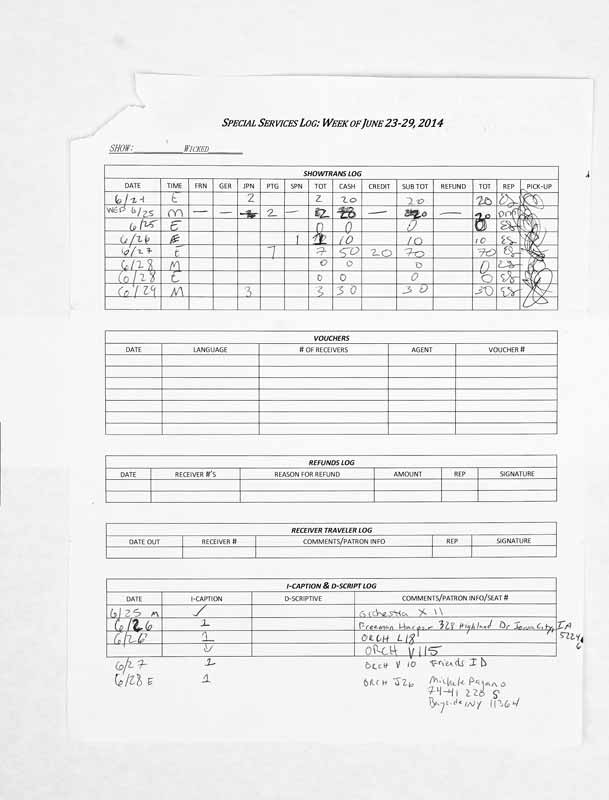 SPECIAL SERVICES LOG: WEEK OF JUNE 23-29, 2014
SHOW: WICKED
SHOWTRANS LOG
DATE TIME FRN GER JPN PTG SPN TOT CASH CREDIT SUB TOT REFUND TOT REP PICK-UP
6/24 E 2 2 20 20 20 ES
WED 6/25 M — — 2 — 2 20 — 20 — 20
6/25 E 0 0 0 0 ES
6/26 E 1 1 10 10 10 ES
6/27 E 7 7 50 20 70 70 ES
6/28 M 0 0 0 0 ES
6/28 E 0 0 0 0 ES
6/29 M 3 3 30 30 30 ES
VOUCHERS
DATE LANGUAGE # OF RECEIVERS AGENT VOUCHER #
REFUNDS LOG
DATE RECEIVER #'S REASON FOR REFUND AMOUNT REP SIGNATURE
RECEIVER TRAVELER LOG
DATE OUT RECEIVER # COMMENTS/PATRON INFO REP SIGNATURE
I-CAPTION & D-SCRIPT LOG
DATE I-CAPTION D-SCRIPTIVE COMMENTS/PATRON INFO/SEAT #
6/25 M ✓ Orchestra X 11
6/26 1 Freeman Harper 328 Highland Dr Iowa City, IA 52246
6/26 1 ORCH L18
ORCH V115
6/27 1 ORCH V 10 Friends ID
6/28 E 1 ORCH J26 Michele Pagano
74-41 220 S
Bayside NY 11364